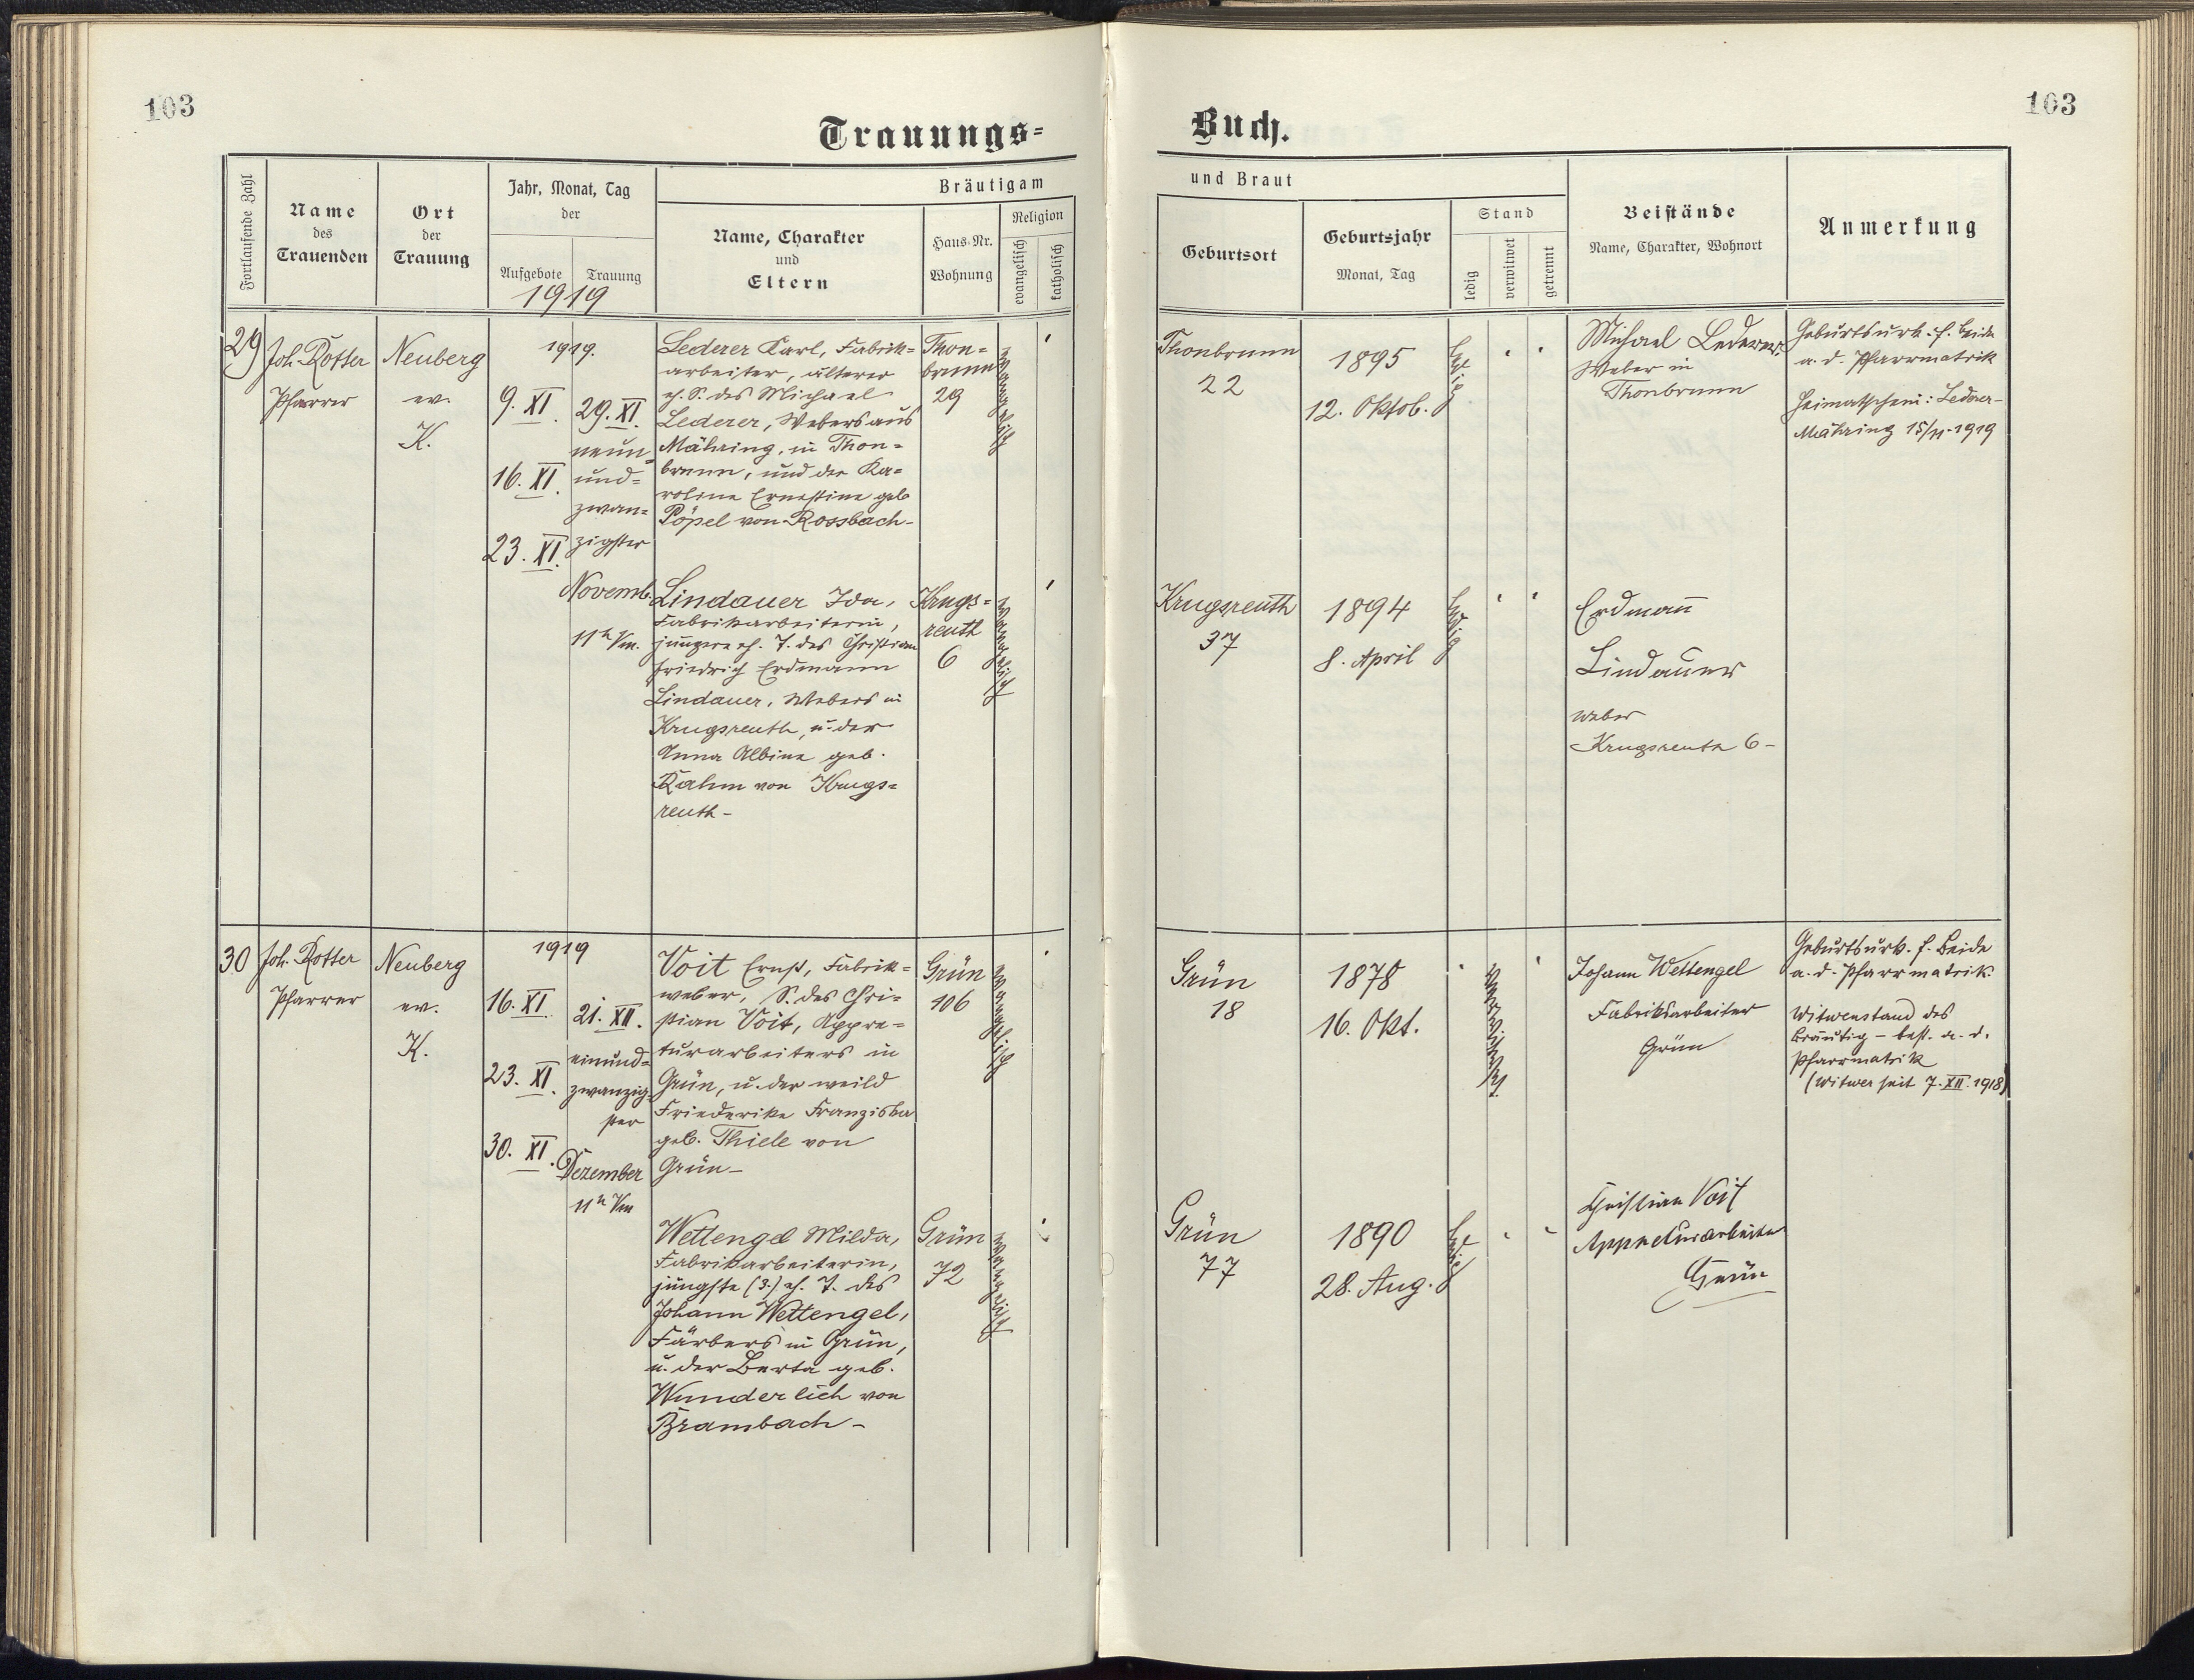 103
103
Trauungs-
Buch.
Fortlaufende Zahl
Name
des
Trauenden
Ort
der
Trauung
Jahr, Monat, Tag
der
Aufgebote
Trauung
1919
Bräutigam
Name, Charakter
und
Eltern
Haus-Nr.
Wohnung
Religion
evangelisch
katholisch
und Braut
Geburtsort
Geburtsjahr
Monat, Tag
Stand
ledig
verwitwet
getrennt
Beistände
Name, Charakter, Wohnort
Anmerkung
29
Joh. Rotter
Pfarrer
Neuberg
ev.
K.
1919.
9. XI.
16. XI.
23. XI.
29. XI.
neun-
und-
zwan-
zigster
Novemb.
11h Vm.
Lederer Karl, Fabrik-
arbeiter, älterer
eh. S. des Michael
Lederer, Webers aus
Mähring, in Thon-
brunn, und der Ka-
roline Ernestine geb
Pöpel von Rossbach-
Thon-
brunn
29
evangelisch
Thonbrunn
22
1895
12. Oktob.
ledig
Michael Lederer,
Weber in
Thonbrunn
Geburtsurk. f. beide
a. d. Pfarrmatrik
Heimatschein: Lederer-
Mähring 15/11. 1919
Lindauer Ida,
Fabrikarbeiterin,
jüngere eh. T. des Christian
Friedrich Erdmann
Lindauer, Webers in
Krugsreuth, u. der
Anna Albine geb.
Rahm von Krugs-
reuth-
Krugs-
reuth
6
evangelisch
Krugsreuth
37
1894
8. April
ledig
Erdmann
Lindauer
Weber
Krugsreuth 6-
30
Joh. Rotter
Pfarrer
Neuberg
ev.
K.
1919
16. XI.
23. XI.
30. XI.
21. XII.
einund-
zwanzig-
ster
Dezember
11h Vm
Voit Ernst, Fabrik-
weber, S. des Chri-
stian Voit, Appre-
turarbeiters in
Grün, u. der weild
Friederike Franziska
geb. Thiele von
Grün-
Grün
106
evangelisch
Grün
18
1878
16. Okt.
verwitwet
Johann Wettengel
Fabriksarbeiter
Grün
Geburtsurk. f. Beide
a. d. Pfarrmatrik.
Witwenstand des
Bräutig - best. a. d.
Pfarrmatrik
(Witwer seit 7. XII. 1918)
Wettengel Milda,
Fabrikarbeiterin,
jüngste (3.) eh. T. des
Johann Wettengel,
Färbers in Grün,
u. der Berta geb.
Wunderlich von
Brambach-
Grün
72
evangelisch
Grün
77
1890
28. Aug.
ledig
Christian Voit
Appreturarbeiter
Grün